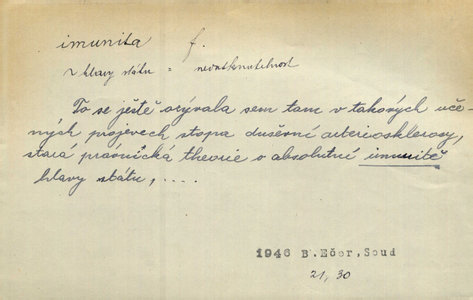 imunita f.
hlavy státu = nedotknutelnost
To se ještě ozývala sem tam v takových uče-
ných projevech stopa duševní arteriosklerosy,
stará právnická theorie o absolutní imunitě
hlavy státu, ....
1946 B. Ečer, Soud
21, 30